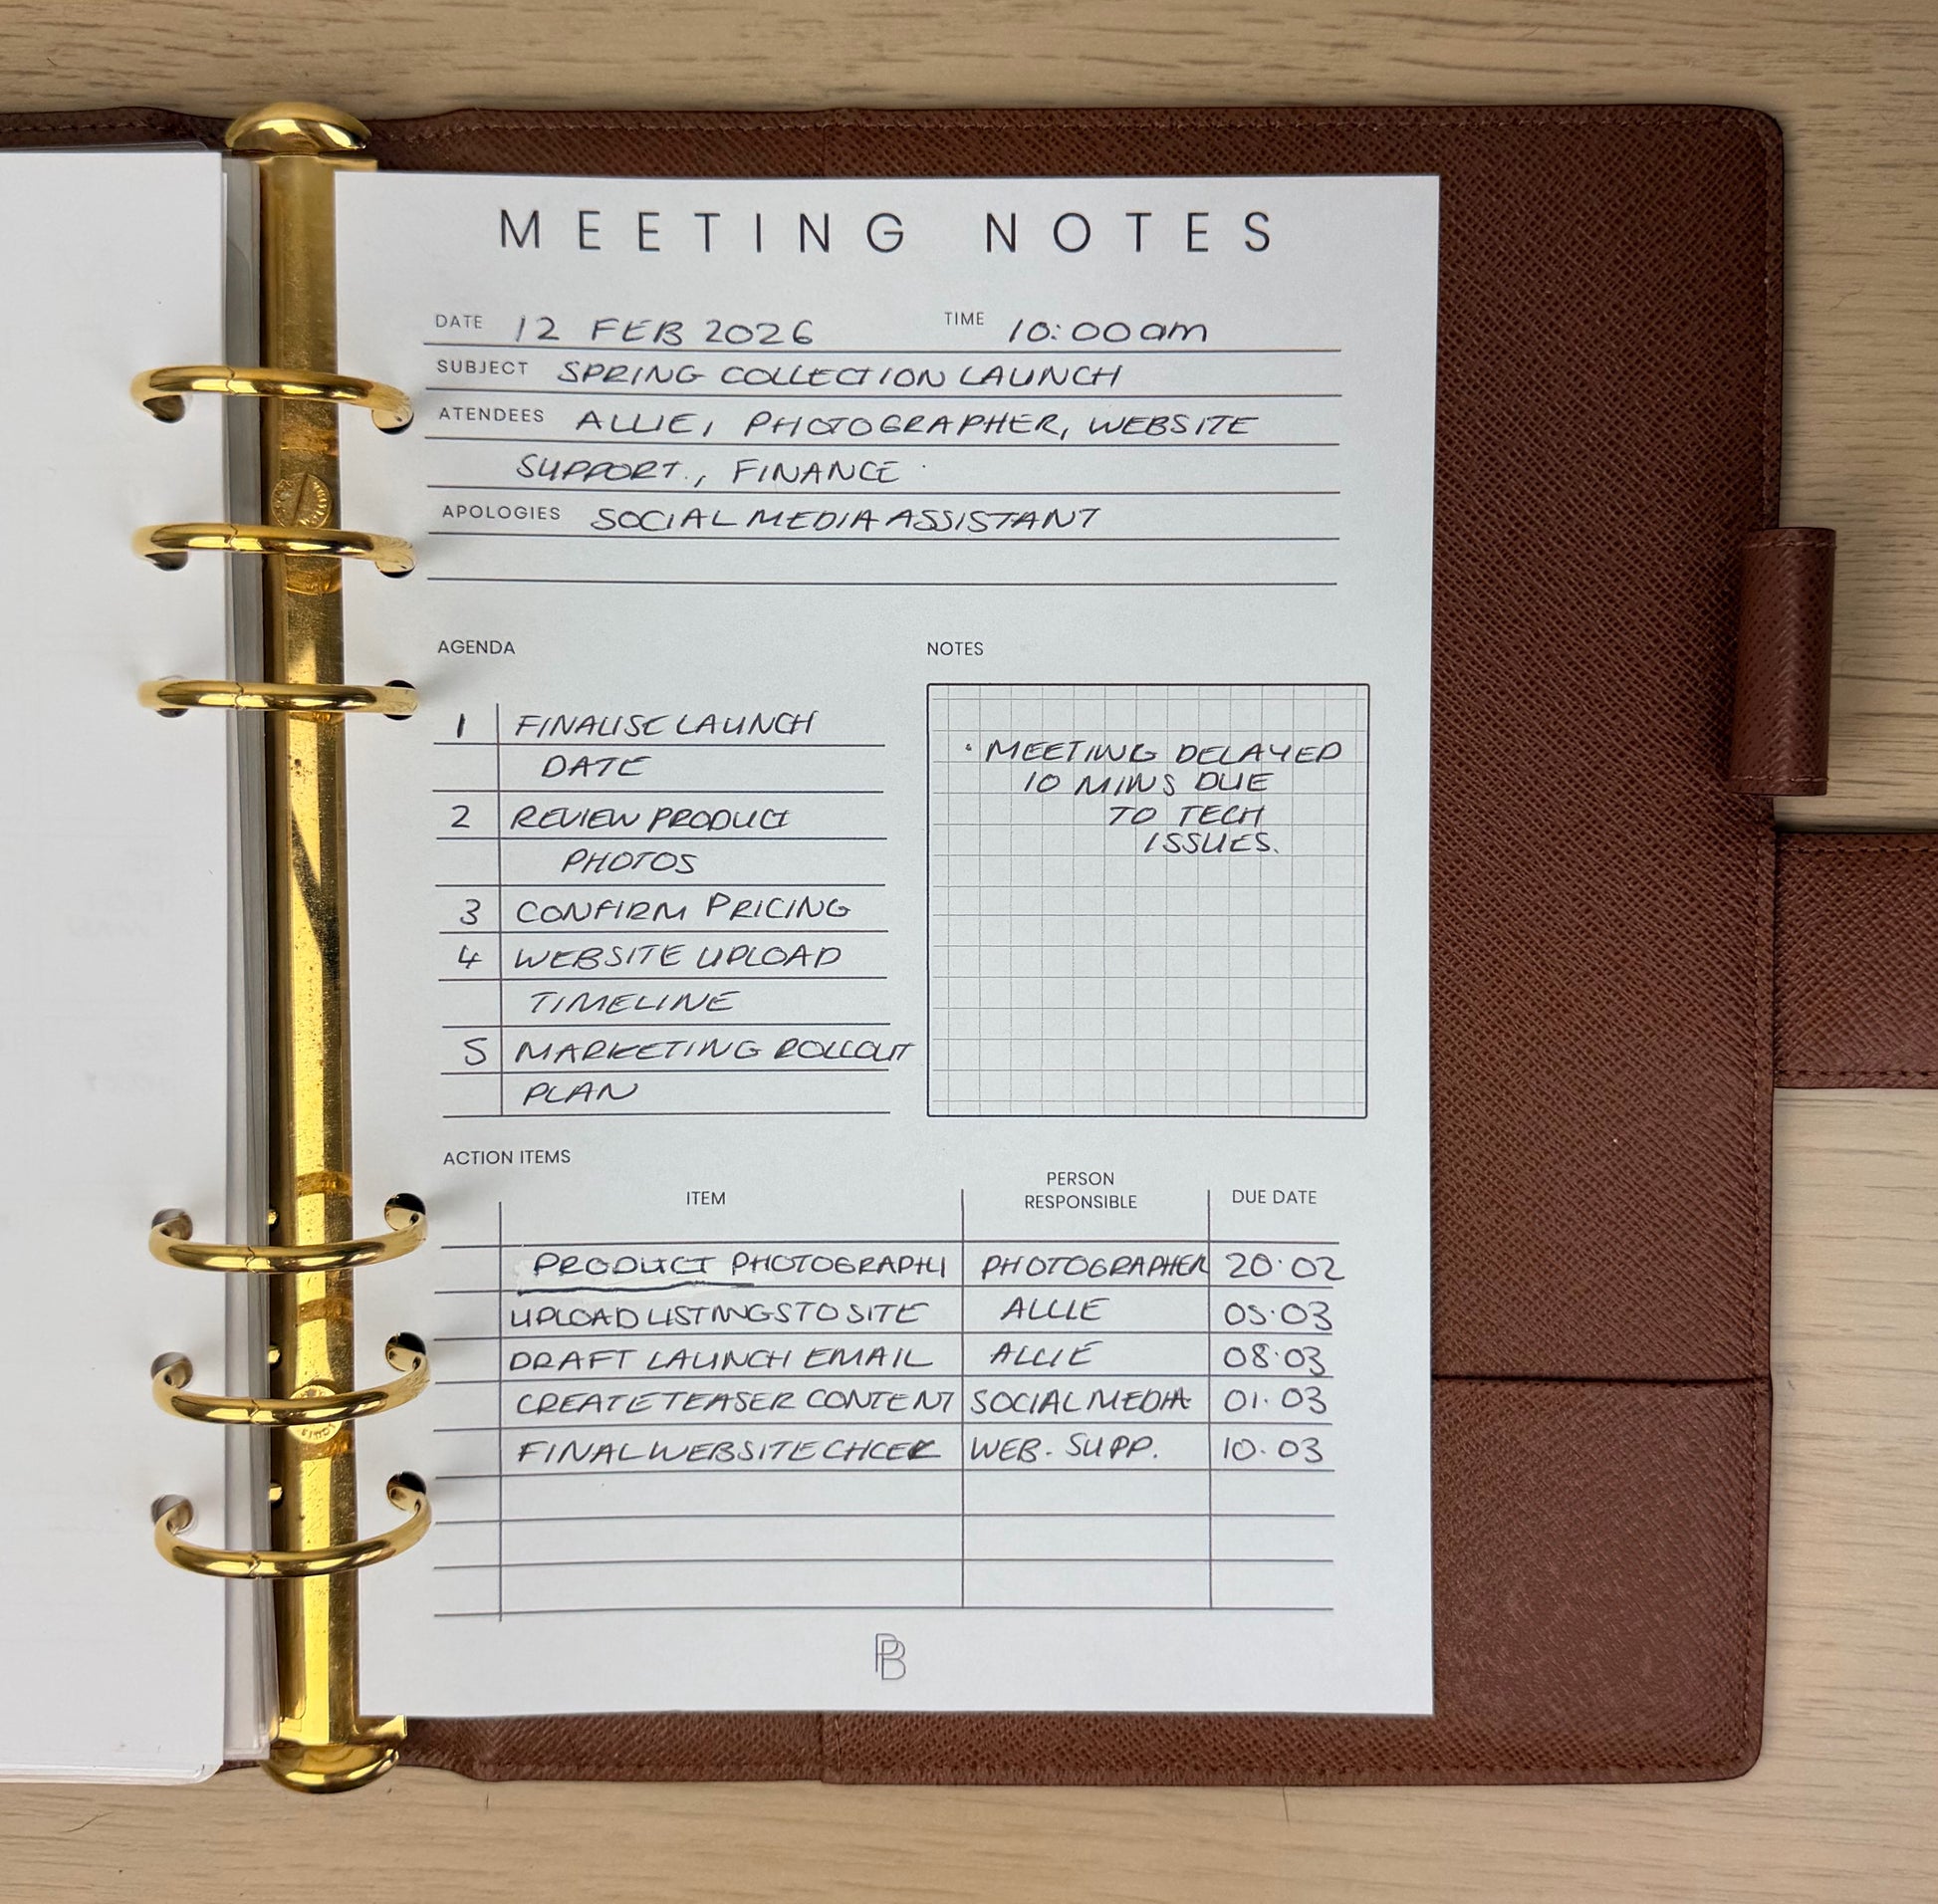 MEETING NOTES
DATE 12 FEB 2026 TIME 10:00am
SUBJECT SPRING COLLECTION LAUNCH
ATENDEES ALLIE, PHOTOGRAPHER, WEBSITE
SUPPORT., FINANCE
APOLOGIES SOCIAL MEDIA ASSISTANT
AGENDA
1 FINALISE LAUNCH
DATE
2 REVIEW PRODUCT
PHOTOS
3 CONFIRM PRICING
4 WEBSITE UPLOAD
TIMELINE
5 MARKETING ROLLOUT
PLAN
NOTES
• MEETING DELAYED
10 MINS DUE
TO TECH
ISSUES.
ACTION ITEMS
ITEM PERSON RESPONSIBLE DUE DATE
PRODUCT PHOTOGRAPHY PHOTOGRAPHER 20·02
UPLOAD LISTINGS TO SITE ALLIE 05·03
DRAFT LAUNCH EMAIL ALLIE 08·03
CREATE TEASER CONTENT SOCIAL MEDIA 01·03
FINAL WEBSITE CHCEK WEB. SUPP. 10·03
PB